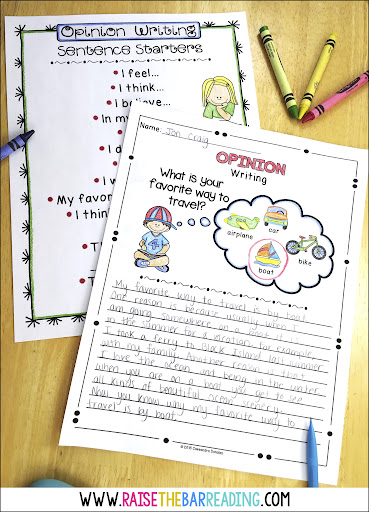 Opinion Writing
Sentence Starters
I feel...
I think...
I believe...
In my
I
I
My favor
I thin
Th
Name: Jon Craig
OPINION
Writing
What is your
favorite way to
travel?
airplane
car
bike
boat
My favorite way to travel is by boat.
One reason is because usually when I
am going somewhere on a boat it is
in the summer for a vacation. For example,
I took a ferry to Block Island last summer
with my family. Another reason is that
I love the ocean and being in the water.
when you are on a boat you get to see
all kinds of beautiful ocean scenery.
Now you know why my favorite way to
travel is by boat.
WWW.RAISETHEBARREADING.COM